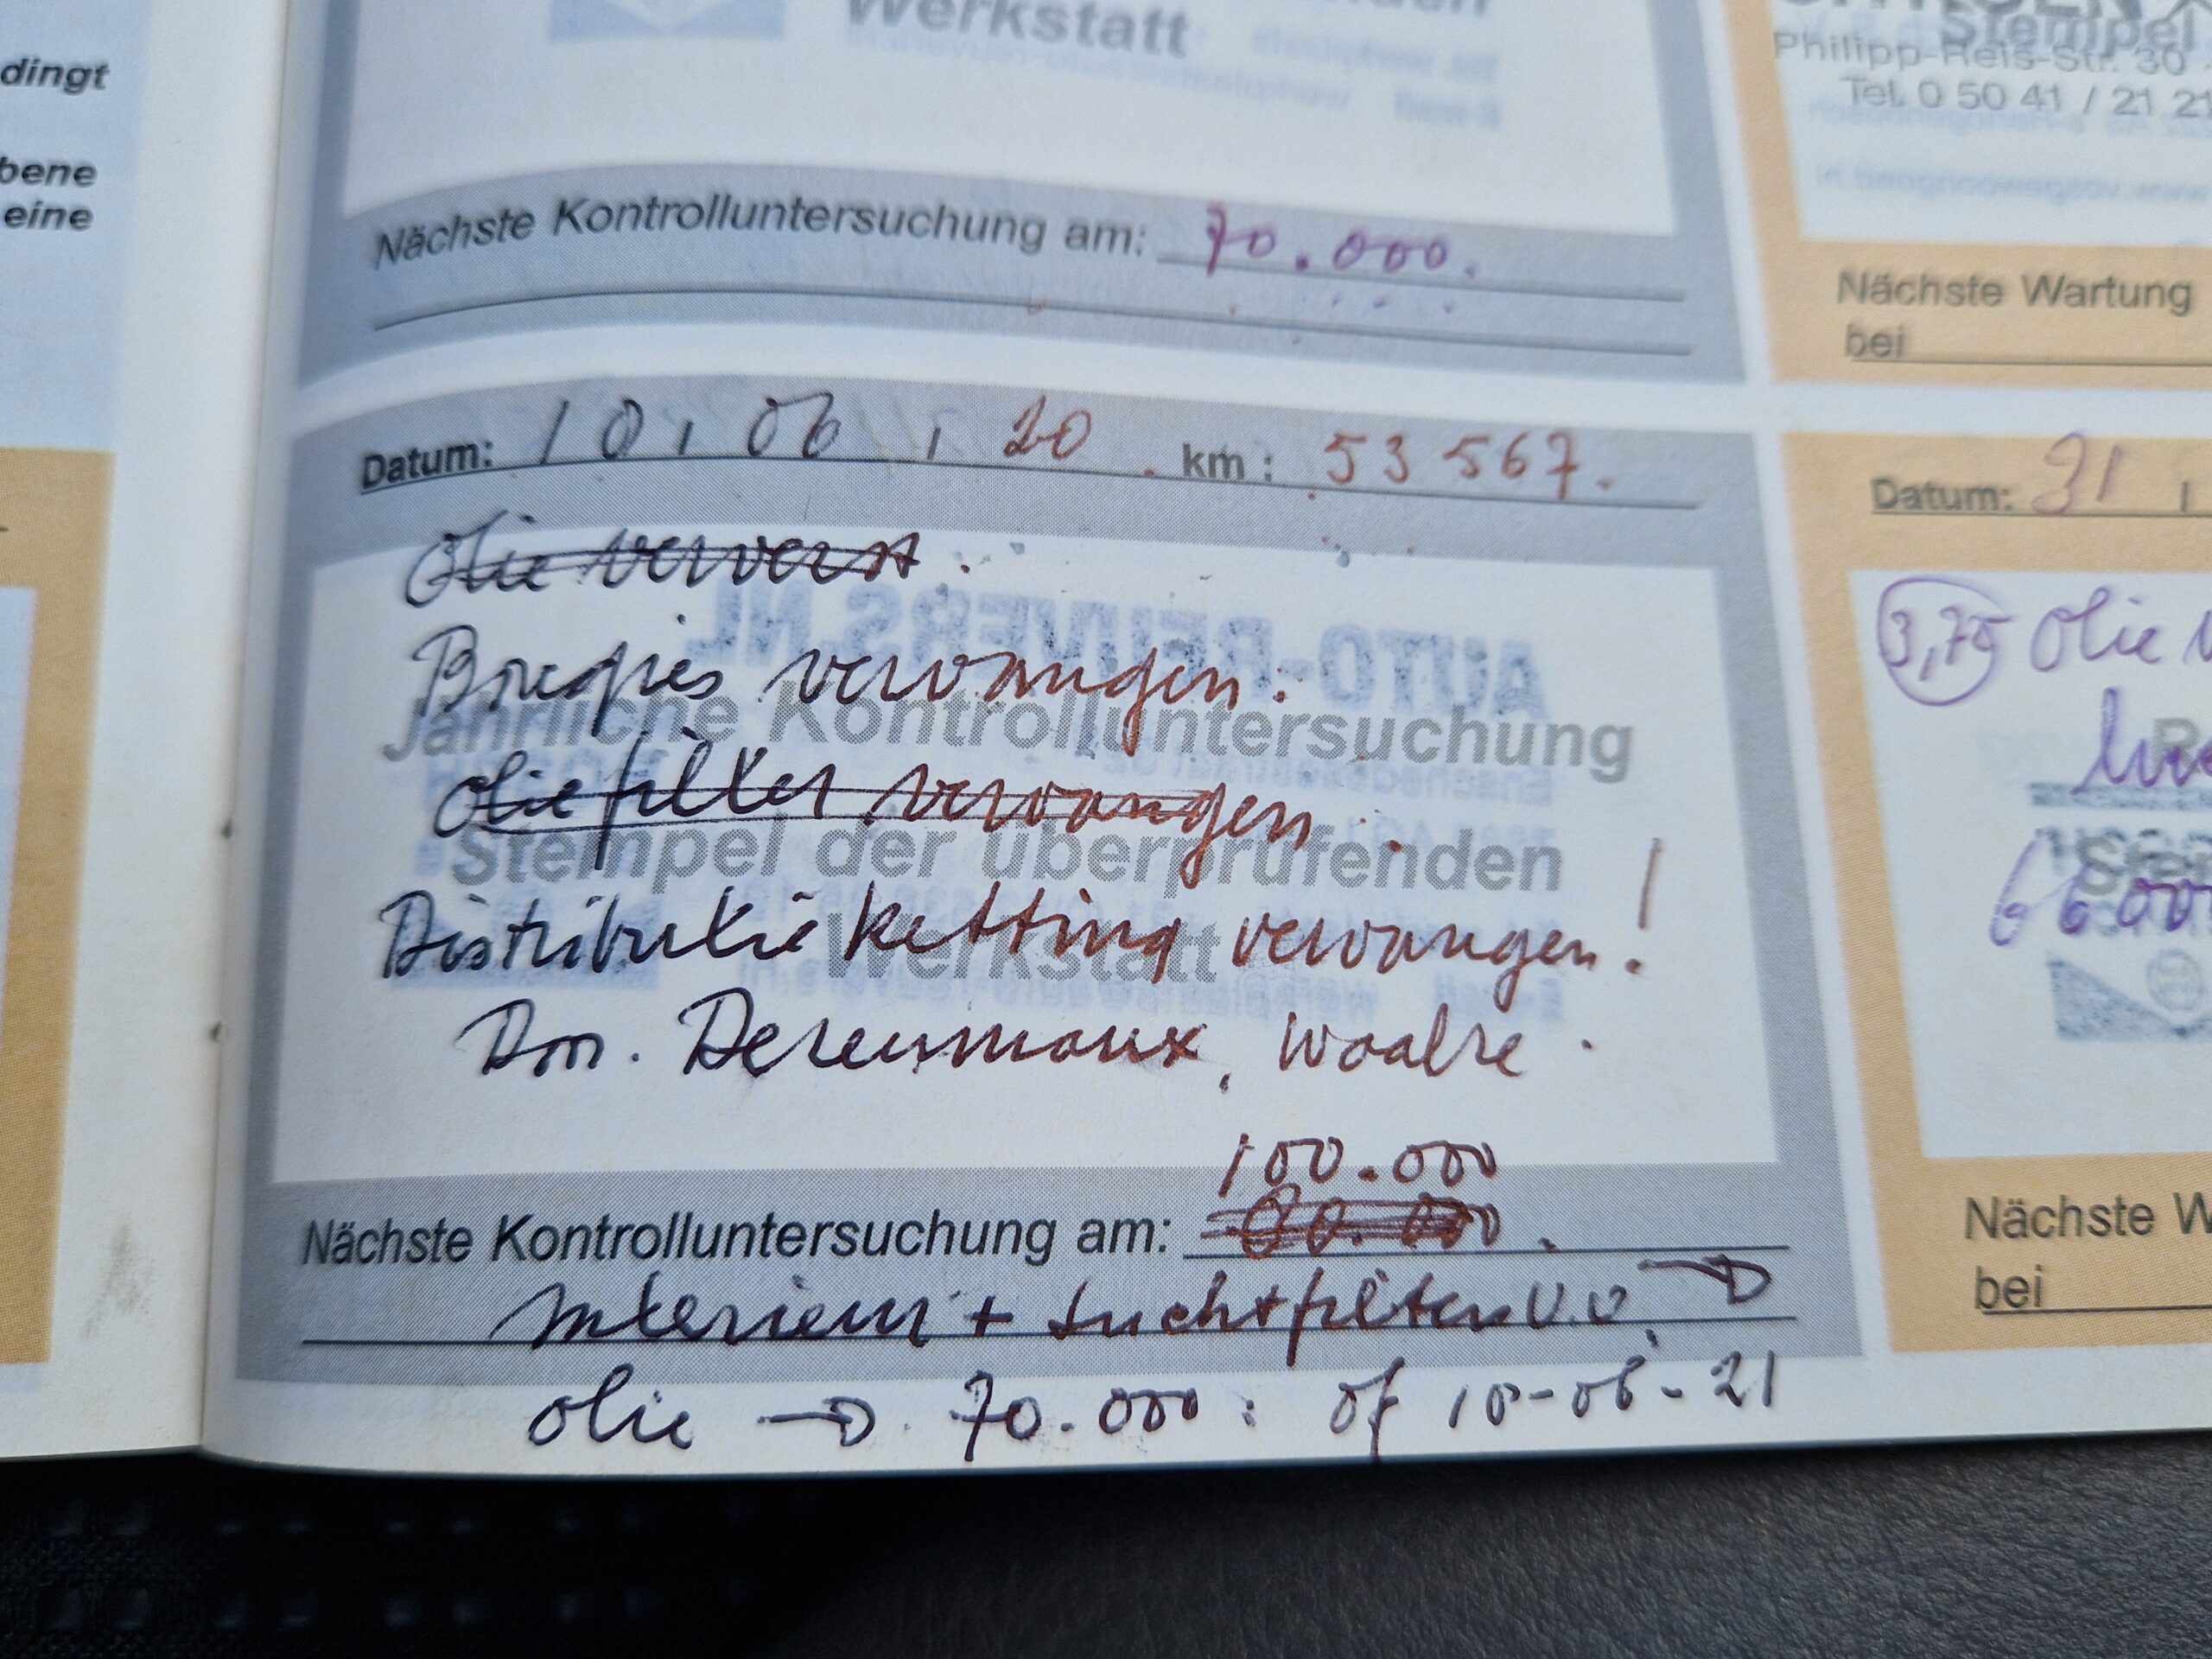 dingt
bene
eine
Werkstatt
Nächste Kontrolluntersuchung am: 70.000.
Datum: 10, 06, 20. km: 53 567.
Olie ververst.
vervangen.
Jährliche Kontrolluntersuchung
Olie filter vervangen.
Stempel der überprüfenden
Distributie ketting vervangen!
Werkstatt
Waalre.
100.000
Nächste Kontrolluntersuchung am: 80.000.
Interieur + Luchtfilter v.v.
olie → 70.000: of 10-06-21
Stempel
Philipp-Reis-Str. 30
Tel. 0 50 41 / 21 21
Nächste Wartung
bei
Datum: 31
3,75 Olie
66000
Nächste W
bei